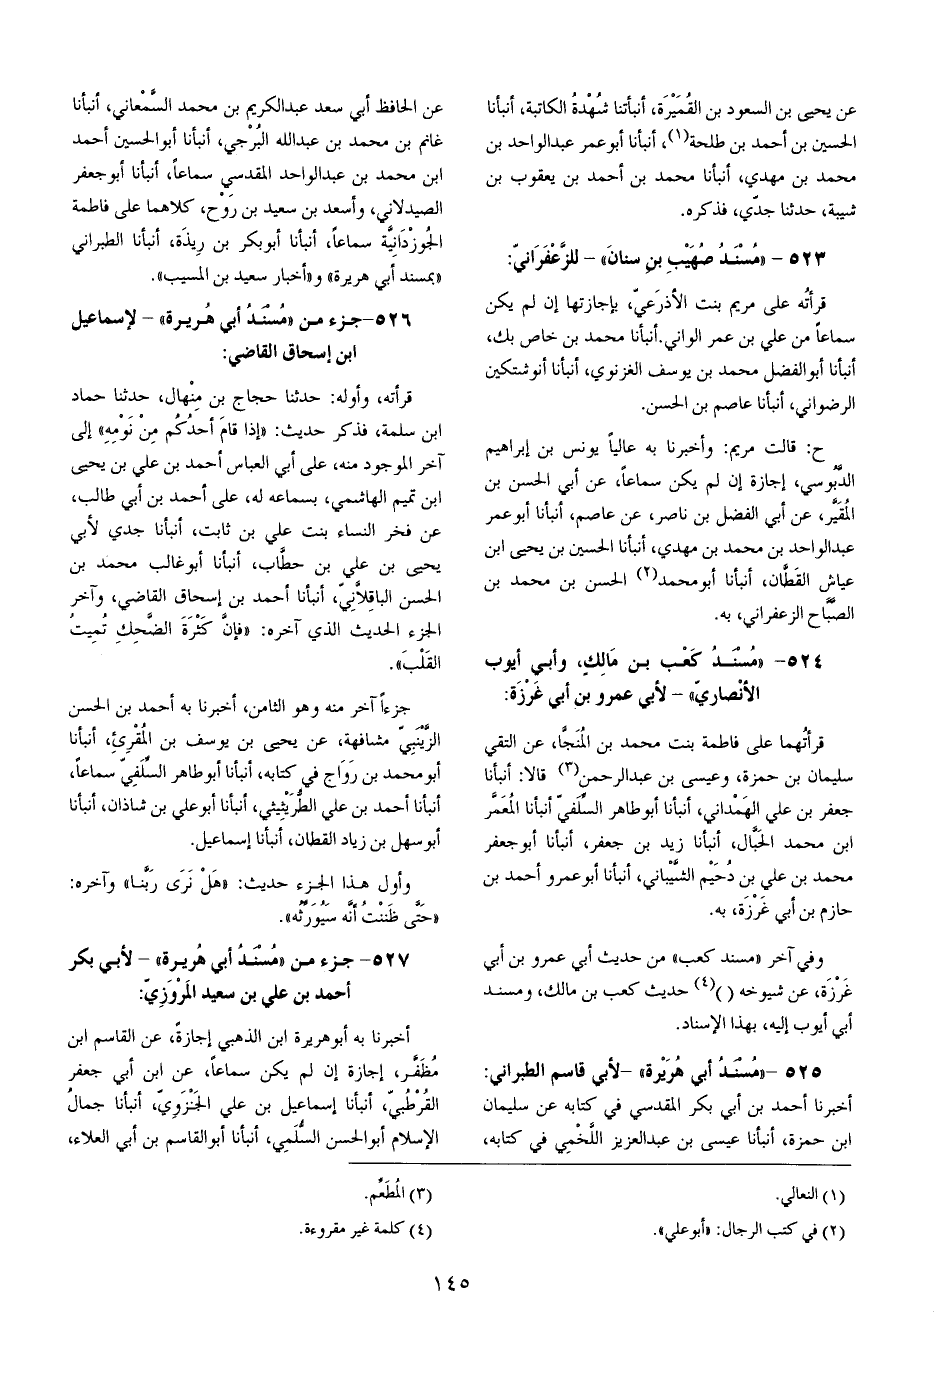 عن يحيى بن السعود بن القُمَيْرَة، أنبأتنا شُهْدةُ الكاتبة، أنبأنا
الحسين بن أحمد بن طلحة(١)، أنبأنا أبوعمر عبدالواحد بن
محمد بن مهدي، أنبأنا محمد بن أحمد بن يعقوب بن
شيبة، حدثنا جدّي، فذكره.
٥٢٣ - «مُسْنَدُ صُهَيْبِ بنِ سنان» - للزَّعْفَرَانيّ:
قرأتُه على مريم بنت الأذرَعيّ، بإجازتها إن لم يكن
سماعاً من علي بن عمر الواني.أنبأنا محمد بن خاص بك،
أنبأنا أبوالفضل محمد بن يوسف الغزنوي، أنبأنا أنوشتكين
الرضواني، أنبأنا عاصم بن الحسن.
ح: قالت مريم: وأخبرنا به عالياً يونس بن إبراهيم
الدَّبُوسي، إجازة إن لم يكن سماعاً، عن أبي الحسن بن
المُقَيَّر، عن أبي الفضل بن ناصر، عن عاصم، أنبأنا أبوعمر
عبدالواحد بن محمد بن مهدي، أنبأنا الحسين بن يحيى ابن
عياش القَطَّان، أنبأنا أبومحمد(٢) الحسن بن محمد بن
الصَّبَّاح الزعفراني، به.
٥٢٤- «مُسْنَدُ كَعْب بـن مَالِكٍ، وأبـي أيوب
الأنْصاريّ» - لأبي عمرو بن أبي غَرْزَة:
قرأتُهما على فاطمة بنت محمد بن المُنَجَّا، عن التقي
سليمان بن حمزة، وعيسى بن عبدالرحمن(٣) قالا: أنبأنا
جعفر بن علي الهمْداني، أنبأنا أبوطاهر السِّلَفيّ أنبأنا المُعَمَّر
ابن محمد الحَبَّال، أنبأنا زيد بن جعفر، أنبأنا أبوجعفر
محمد بن علي بن دُحَيْم الشَّيْباني، أنبأنا أبوعمرو أحمد بن
حازم بن أبي غَرْزَة، به.
وفي آخر «مسند كعب» من حديث أبي عمرو بن أبي
غَرْزَة، عن شيوخه ( )(٤) حديث كعب بن مالك، ومسند
أبي أيوب إليه، بهذا الإسناد.
٥٢٥ -«مُسْنَدُ أبي هُرَيْرة» -لأبي قاسم الطبراني:
أخبرنا أحمد بن أبي بكر المقدسي في كتابه عن سليمان
ابن حمزة، أنبأنا عيسى بن عبدالعزيز اللَّخْمي في كتابه،
عن الحافظ أبي سعد عبدالكريم بن محمد السَّمْعاني، أنبأنا
غانم بن محمد بن عبدالله البُرْجي، أنبأنا أبوالحسين أحمد
ابن محمد بن عبدالواحد المقدسي سماعاً، أنبأنا أبوجعفر
الصيدلاني، وأسعد بن سعيد بن رَوْح، كلاهما على فاطمة
الجُوزْدَانِيَّة سماعاً، أنبأنا أبوبكر بن رِيذَة، أنبأنا الطبراني
«بمسند أبي هريرة» و«أخبار سعيد بن المسيب».
٥٢٦-جـزء مـن «مُسْنَدُ أبي هُـريـرة» - لإسماعيل
ابن إسحاق القاضي:
قرأته، وأوله: حدثنا حجاج بن مِنْهال، حدثنا حماد
ابن سلمة، فذكر حديث: «إذا قامَ أحدُكُم مِنْ نَوْمِهِ» إلى
آخر الموجود منه، على أبي العباس أحمد بن علي بن يحيى
ابن تميم الهاشمي، بسماعه له، على أحمد بن أبي طالب،
عن فخر النساء بنت علي بن ثابت، أنبأنا جدي لأبي
يحيى بن علي بن حطَّاب، أنبأنا أبوغالب محمد بن
الحسن الباقِلَّانيّ، أنبأنا أحمد بن إسحاق القاضي، وآخر
الجزء الحديث الذي آخره: «فإنَّ كَثْرَةَ الضَّحِكِ تُمِيتُ
القَلْبَ».
جزءاً آخر منه وهو الثامن، أخبرنا به أحمد بن الحسن
الزَّيْنَبيّ مشافهة، عن يحيى بن يوسف بن المُقْرِئ، أنبأنا
أبومحمد بن رَوَاج في كتابه، أنبأنا أبوطاهر السِّلَفيّ سماعاً،
أنبأنا أحمد بن علي الطُّرَيْثِيثي، أنبأنا أبوعلي بن شاذان، أنبأنا
أبوسهل بن زياد القطان، أنبأنا إسماعيل.
وأول هـذا الجـزء حديث: «هَلْ نَرَى رَبَّنـا» وآخره:
«حَتَّى ظَنَنْتُ أنَّه سَيُوَرِّثُه».
٥٢٧- جـزء مـن «مُسْنَدُ أبي هُريـرة» - لأبي بكر
أحمد بن علي بن سعيد المَرْوَزِيّ:
أخبرنا به أبوهريرة ابن الذهبي إجازةً، عن القاسم ابن
مُظَفَّر، إجازة إن لم يكن سماعاً، عن ابن أبي جعفر
القُرْطُبيّ، أنبأنا إسماعيل بن علي الجَنْزَويّ، أنبأنا جمالُ
الإسلام أبوالحسن السُّلَمي، أنبأنا أبوالقاسم بن أبي العلاء،
(١) النعالي.
(٢) في كتب الرجال: «أبوعلي».
(٣) المُطَعِّم.
(٤) كلمة غير مقروءة.
١٤٥